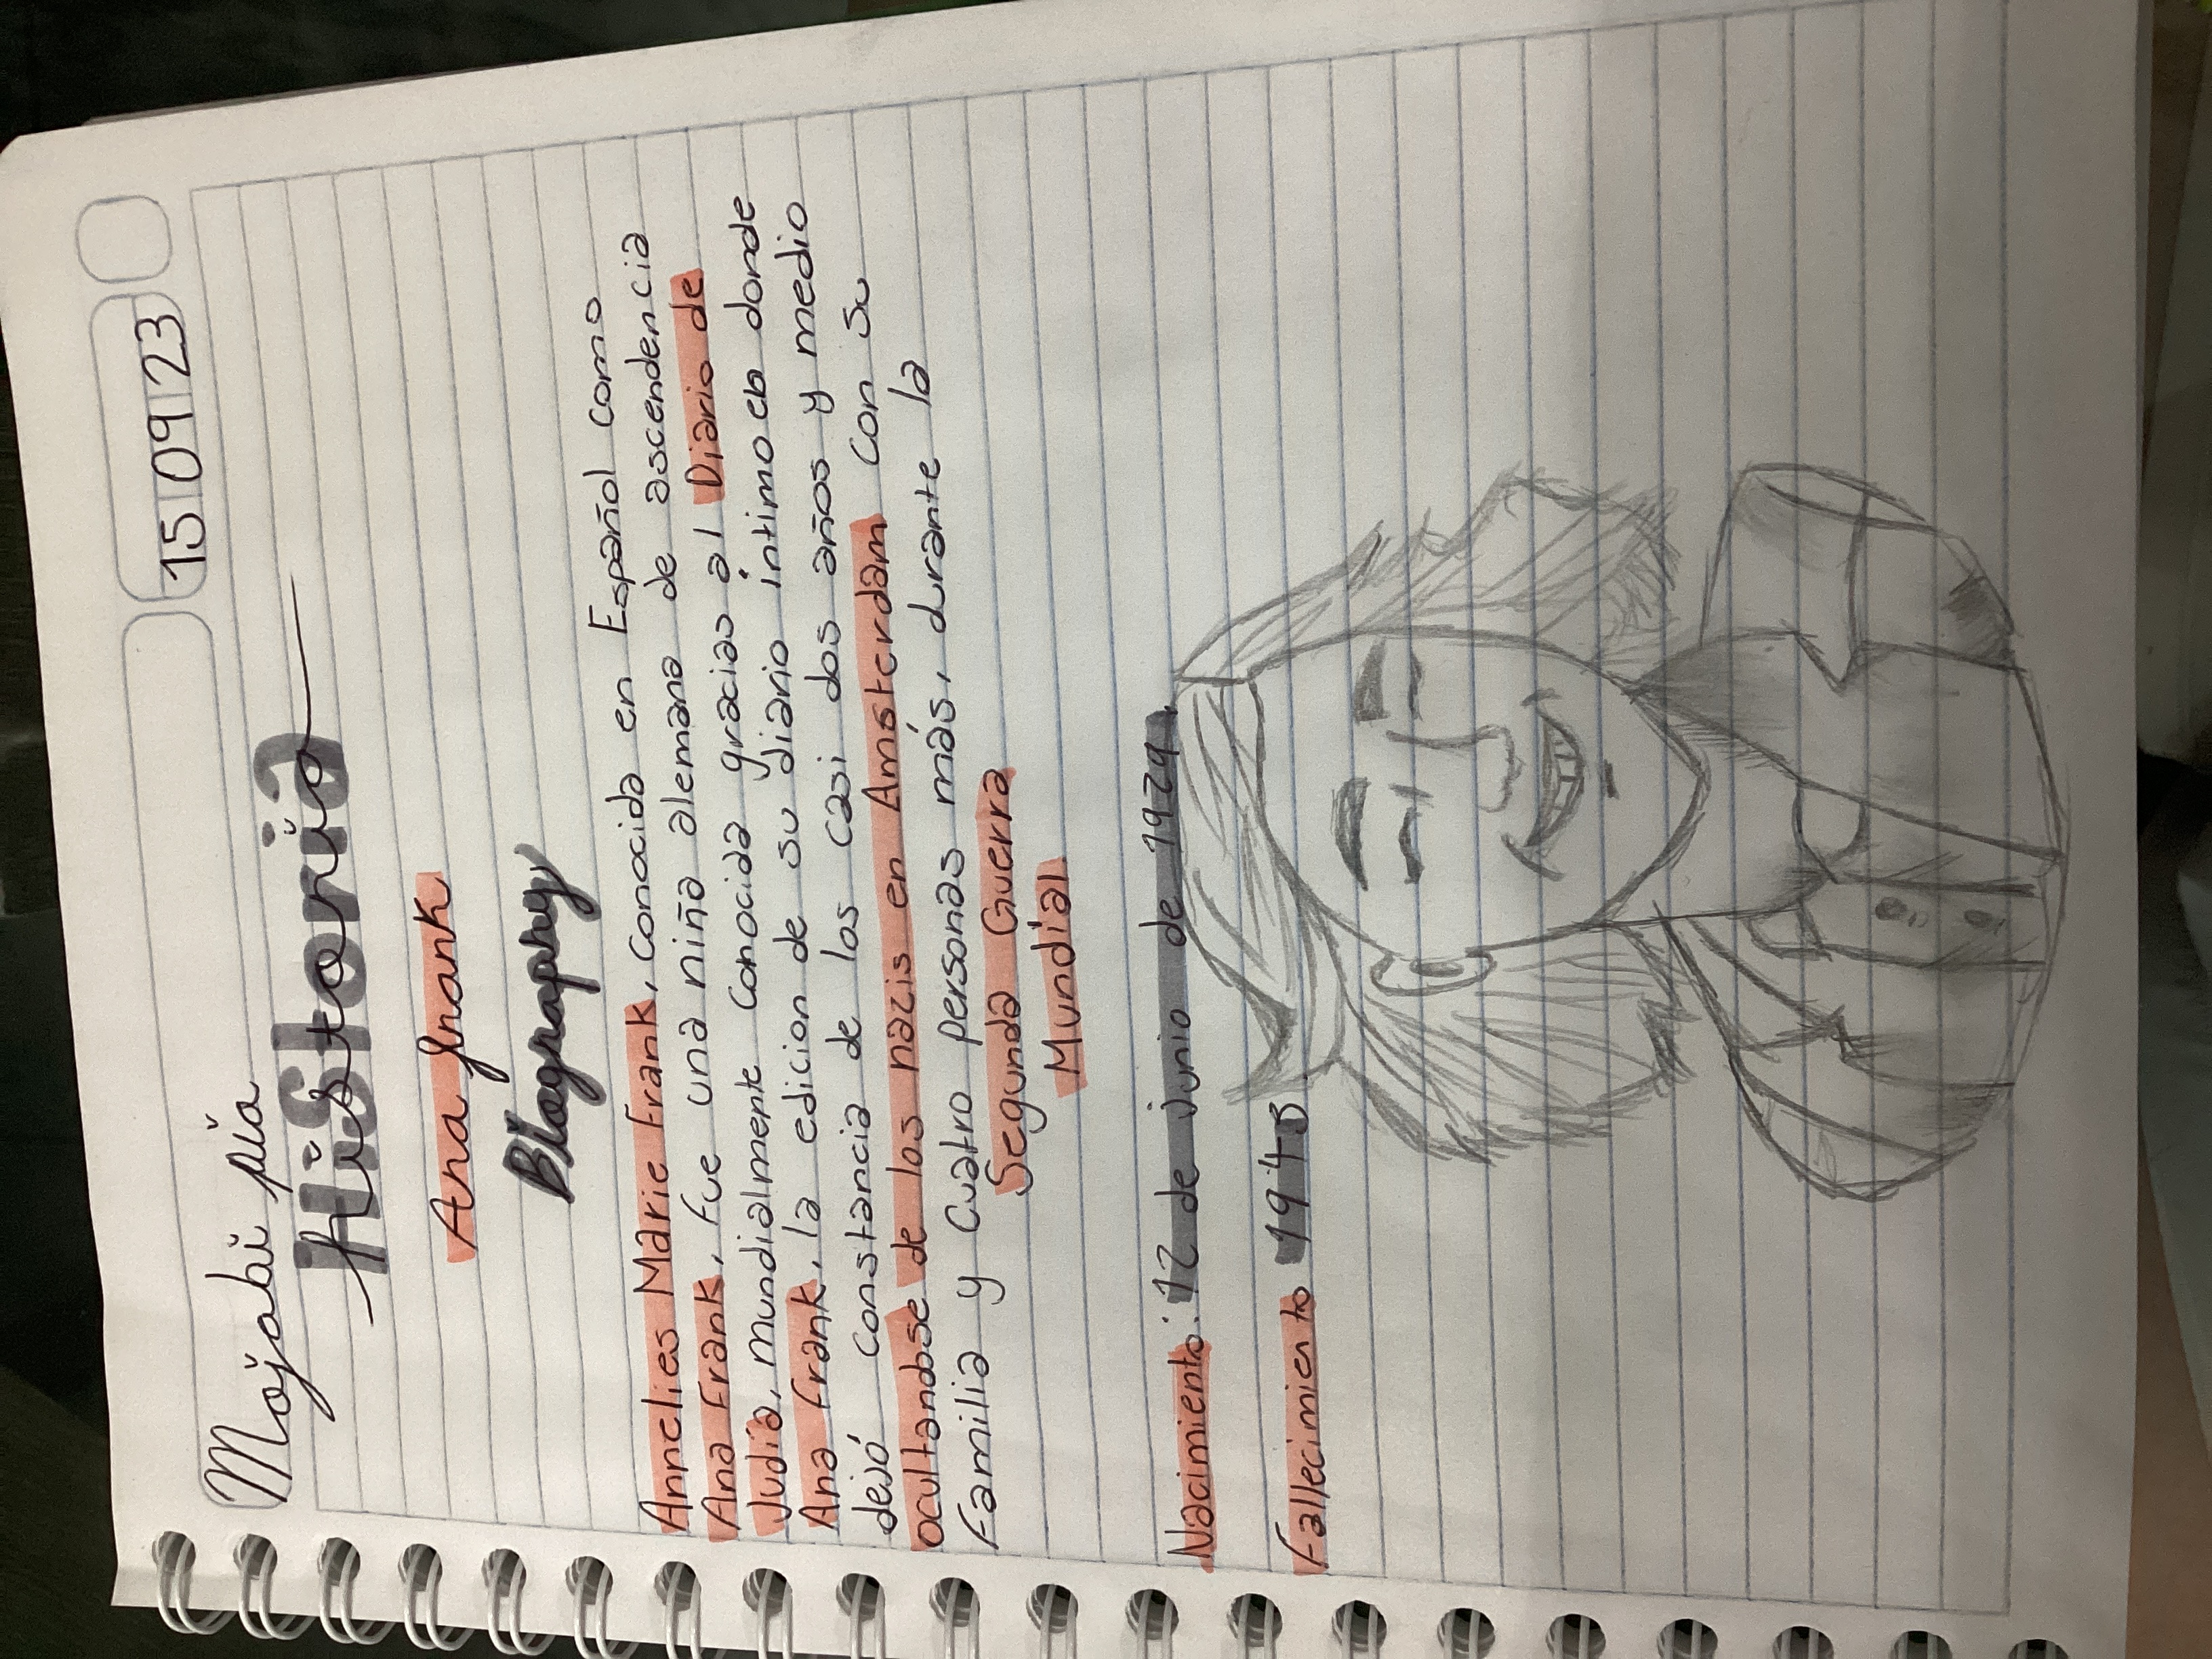 15 09 23
Historia
historia
Ana Frank
Biography
Annelies Marie Frank, conocida en Español como
Ana Frank, fue una niña alemana de ascendencia
Judía, mundialmente conocida gracias al Diario de
Ana Frank, la edicion de su diario íntimo en donde
dejó constancia de los casi dos años y medio
ocultandose de los nazis en Amsterdam con su
familia y cuatro personas más, durante la
Segunda Guerra
Mundial
Nacimiento: 12 de junio de 1929.
Fallecimiento 1945